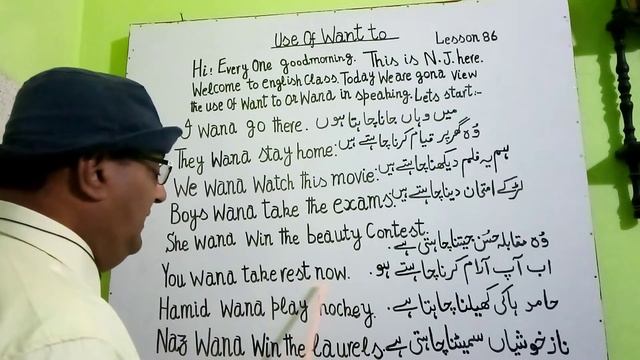 Use Of Want to
Lesson 86
Hi! Every One goodmorning. This is N.J. here.
Welcome to english Class. Today We are gona View
the use Of Want to Or Wana in speaking. Lets start:-
I Wana go there. میں وہاں جانا چاہتا ہوں
They Wana stay home. وُہ گھر پر قیام کرنا چاہتے ہیں
We Wana Watch this movie. ہم یہ فلم دیکھنا چاہتے ہیں
Boys Wana take the exams. لڑکے امتحان دینا چاہتے ہیں
She Wana Win the beauty Contest. وُہ مقابلہ حسُن جیتنا چاہتی ہے
You Wana take rest now. اب آپ آرام کرنا چاہتے ہو
Hamid Wana play hockey. حامد ہاکی کھیلنا چاہتا ہے
Naz Wana Win the laurels. ناز خوشیاں سمیٹنا چاہتی ہے